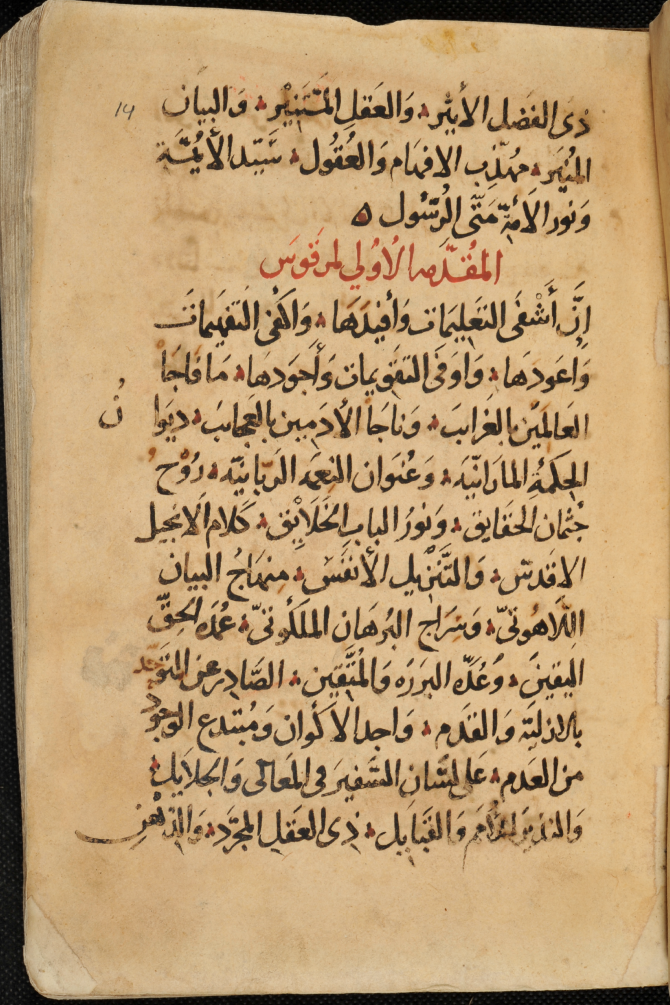 14
ذى الفَضل الأَثير؞ وَالعَقل المُستَنير؞ وَالبيَان
المُنير؞ مهَذّب الافهَام وَالعُقُول؞ سَيّد الأَيمَّة
وَنور الاَمّة مَتَّى الرسُول ه
المقُدّمه الاُولي لمرقوسَ
إِنَّ أَشْفَى التعَليمَات وَأَفيدَهَا؞ وَاكفى التَفهيمَات
وَاَعودهَا؞ وَاوَفىَ التقويمات وَأَجوَدهَا؞ مَا فاجَا
العَالمَين بالغَرايبَ؞ وَناجَا الأدَميين بالعَجايبَ؞ ديوَا نُ
الحِكمةُ المارانيَه؞ وَعُنوَان النِعمَه الرَبانيَه؞ رُوْحُ
جُثمان الحقايق؞ وَنورُ الباب الخَلَايِق؞ كلَام الاَنجيل
الاقدسَ؞ وَالتَنزيل الأَنفَسَ؞ منهاجُ البيَان
اللّاهُوتىّ؞ وَسرَاج البُرهَان الملَكُوتىّ؞ عُمدَه الحقّ
اليَقينَ؞ وَعُدّه البرَرَه وَالمُتَّقين؞ الصَّادِر عن المتَوَحّد
بالازليَّه وَالقدَم؞ وَاجد الاَكوان وَمُبتدع الوجُود
من العدَم؞ عَلى لسَان السَفيرَ فى المَعالى وَالجلايَل؞
وَالنذير للأُمَم وَالقبَايل؞ ذى العَقل المجرَّد؞ وَالذهْن